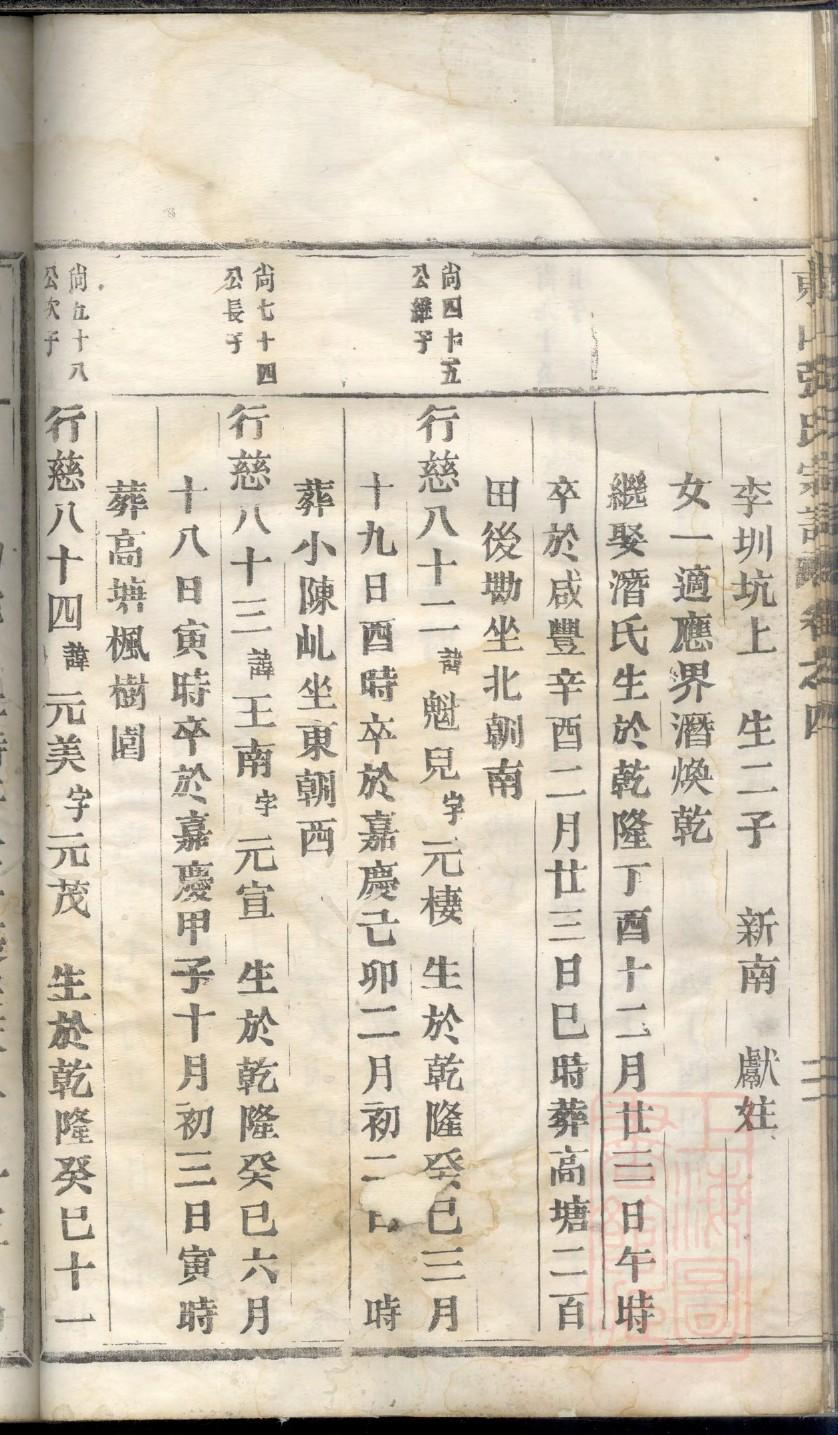 張氏宗譜卷之四
李圳坑上 生二子 新南 獻妵
女一適應界潛煥乾
繼娶潛氏生於乾隆丁酉十二月廿三日午時
卒於咸豐辛酉二月廿三日巳時葬高塘二百
田後墈坐北朝南
尙四十五
公繼子
行慈八十二諱魁兒字元棲 生於乾隆癸巳三月
十九日酉時卒於嘉慶己卯二月初二日 時
葬小陳乢坐東朝西
尙七十四
公長子
行慈八十三諱王南字元宣 生於乾隆癸巳六月
十八日寅時卒於嘉慶甲子十月初三日寅時
葬高塘楓樹園
尙五十八
公次子
行慈八十四諱元美字元茂 生於乾隆癸巳十一
上海圖書館藏